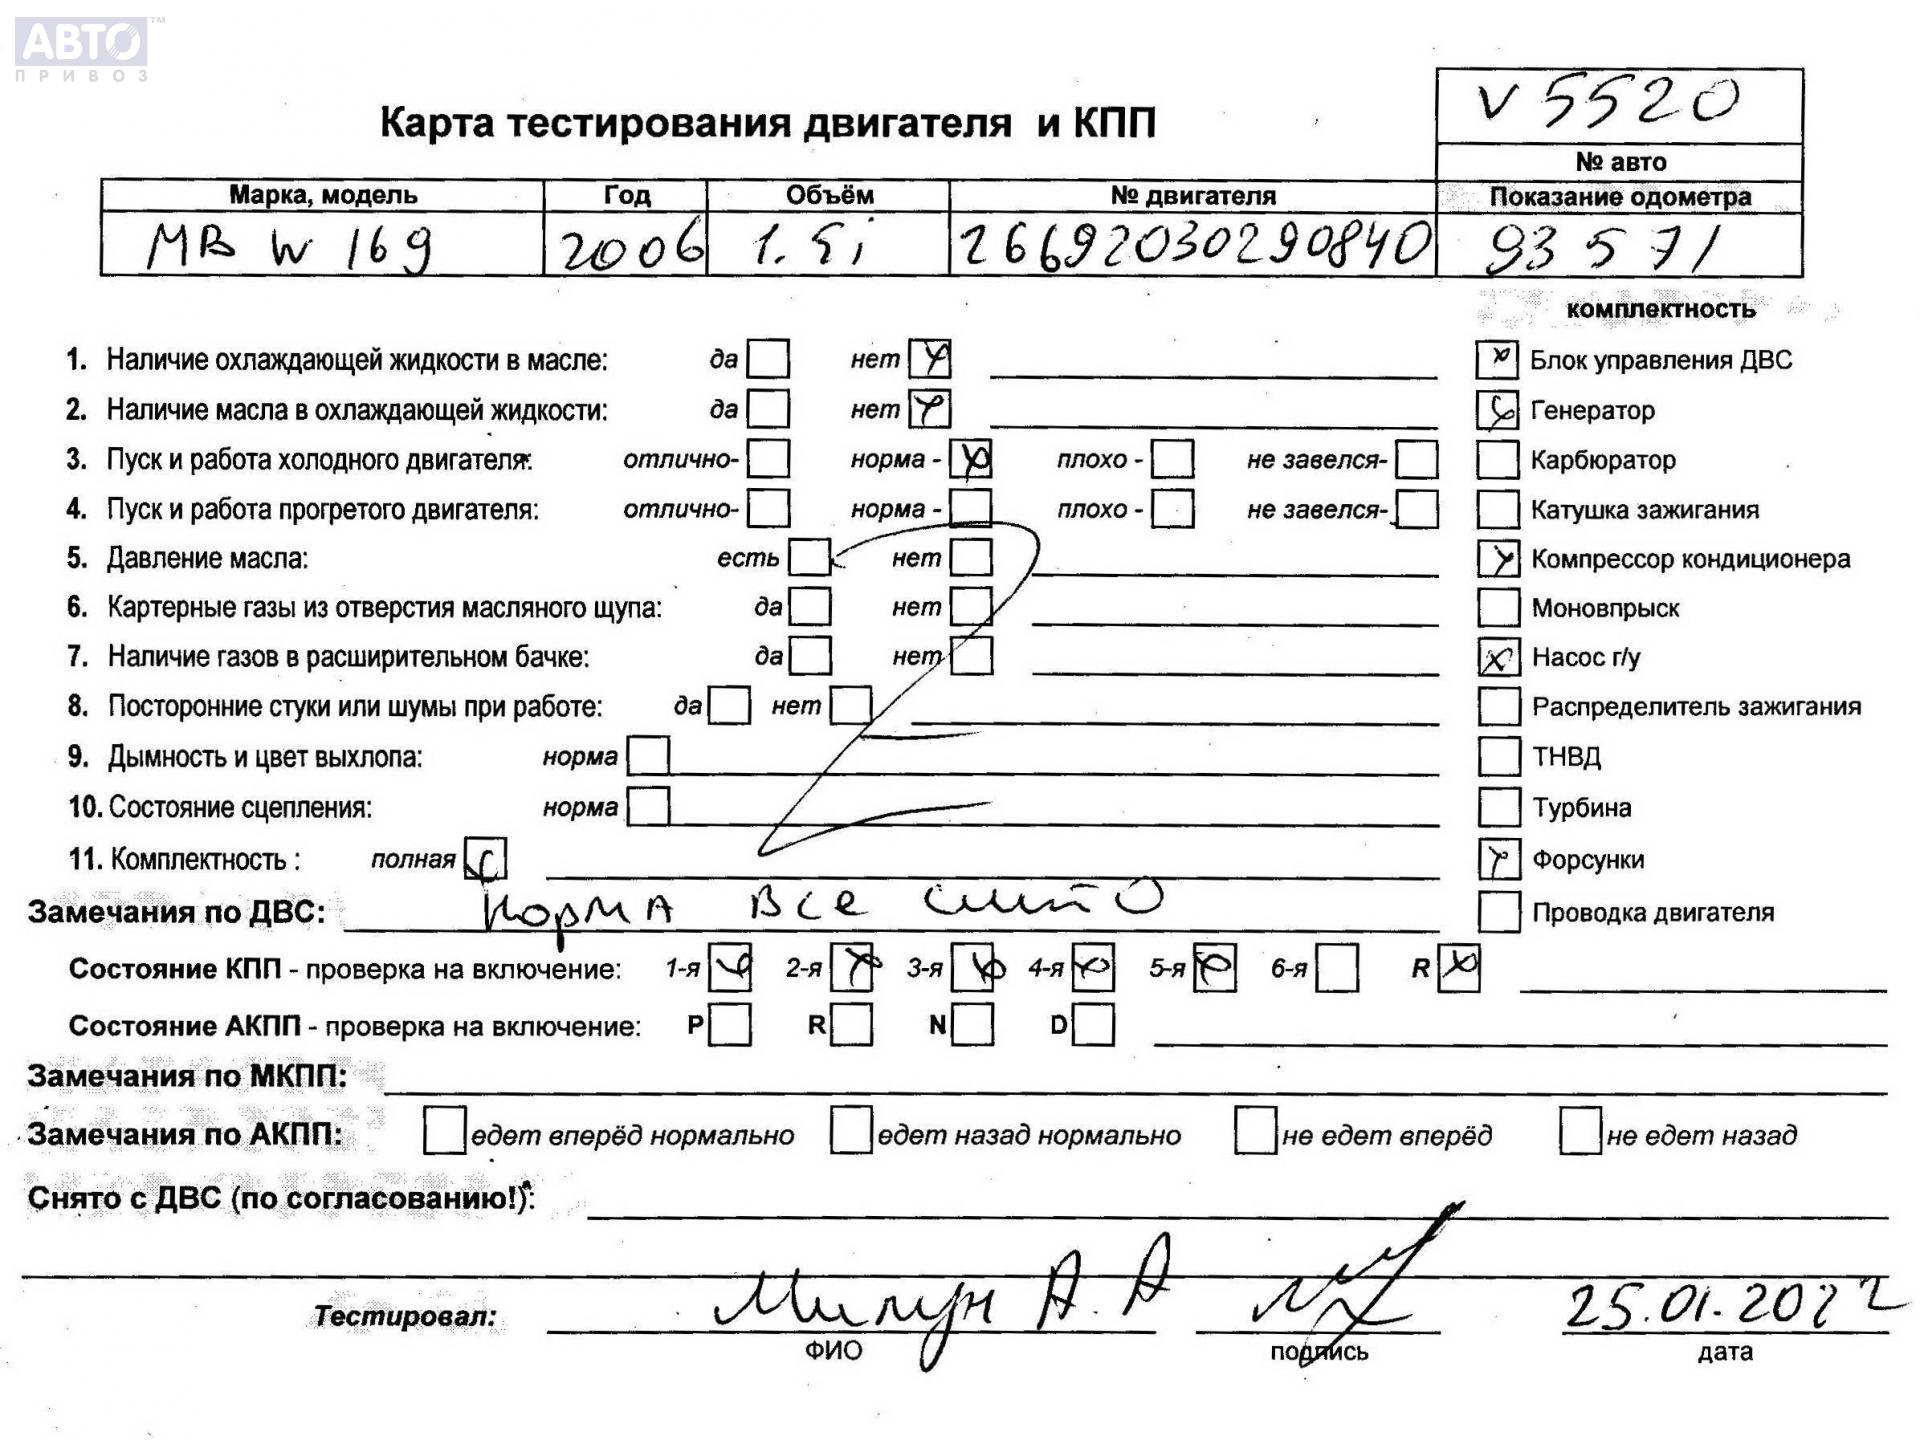 АВТО™
ПРИВОЗ
V5520
Карта тестирования двигателя и КПП
№ авто
Марка, модель Год Объём № двигателя Показание одометра
MB W 169 2006 1.5i 26692030290840 93571
комплектность
1. Наличие охлаждающей жидкости в масле: да нет Блок управления ДВС
2. Наличие масла в охлаждающей жидкости: да нет Генератор
3. Пуск и работа холодного двигателя: отлично- норма - плохо - не завелся- Карбюратор
4. Пуск и работа прогретого двигателя: отлично- норма - плохо - не завелся- Катушка зажигания
5. Давление масла: есть нет Компрессор кондиционера
6. Картерные газы из отверстия масляного щупа: да нет Моновпрыск
7. Наличие газов в расширительном бачке: да нет Насос г/у
8. Посторонние стуки или шумы при работе: да нет Распределитель зажигания
9. Дымность и цвет выхлопа: норма ТНВД
10. Состояние сцепления: норма Турбина
11. Комплектность : полная Форсунки
Замечания по ДВС: норма все Проводка двигателя
Состояние КПП - проверка на включение: 1-я 2-я 3-я 4-я 5-я 6-я R
Состояние АКПП - проверка на включение: P R N D
Замечания по МКПП:
Замечания по АКПП: едет вперёд нормально едет назад нормально не едет вперёд не едет назад
Снято с ДВС (по согласованию!):
Тестировал: А. А 25.01.2022
ФИО подпись дата